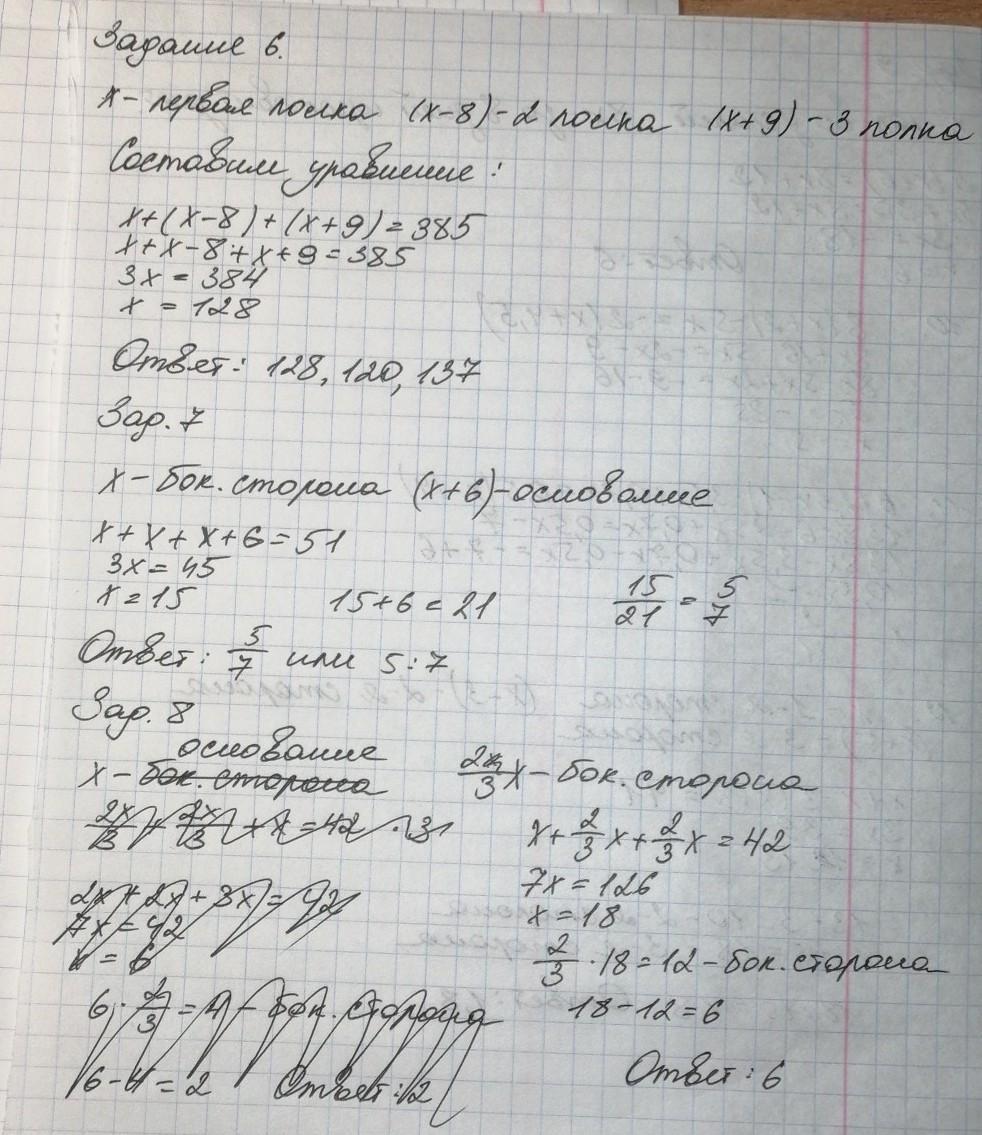 Задание 6.
x – первая полка (x-8) - 2 полка (x+9) - 3 полка
Составим уравнение:
x+(x-8)+(x+9)=385
x+x-8+x+9=385
3x = 384
x = 128
Ответ: 128, 120, 137
Зад. 7
x – бок. сторона (x+6) - основание
x+x+x+6=51
3x=45
x=15 15+6=21 15/21 = 5/7
Ответ: 5/7 или 5:7
Зад. 8
основание
x – бок. сторона 2/3x – бок. сторона
2x/3 + 2x/3 + x = 42 · 3
2x + 2x + 3x = 42
7x = 42
x = 6
6 · 2/3 = 4 – бок. сторона
6-4=2 Ответ: 2
x+2/3x+2/3x=42
7x=126
x=18
2/3·18=12 – бок. сторона
18-12=6
Ответ: 6